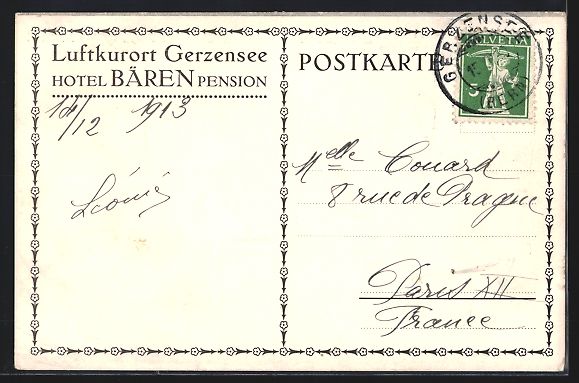 Luftkurort Gerzensee
HOTEL BÄREN PENSION
14/12 1913
Léonie
POSTKARTE
GERZENSEE
(BERN)
HELVETIA
5
Melle Couard
8 rue de Prague
Paris XII
France